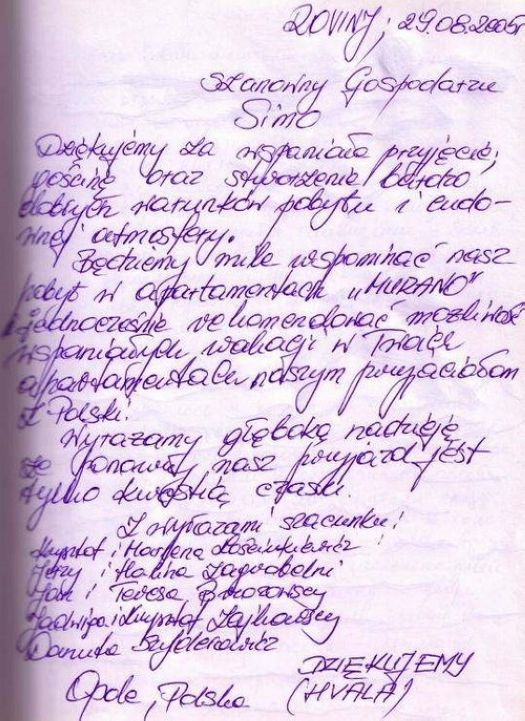 ROVINJ, 29.08.2005r
Szanowny Gospodarzu
Simo
Dziękujemy za wspaniałe przyjęcie,
gościnę oraz stworzenie bardzo
dobrych warunków pobytu i cudo-
wnej atmosfery.
Będziemy mile wspominać nasz
pobyt w apartamentach „MURANO"
i jednocześnie rekomendować możliwość
wspaniałych wakacji w Twoich
apartamentach naszym przyjaciołom
z Polski.
Wyrażamy głęboką nadzieję
że ponowny nasz przyjazd jest
tylko kwestią czasu.
Z wyrazami szacunku!
Krzysztof i Marzena
Jerzy i Halina Zagrobelni
Jan i Teresa Brzozowscy
Jadwiga i Krzysztof Zajkowscy
Danuta Szyderowicz
DZIĘKUJEMY
Opole, Polska (HVALA)